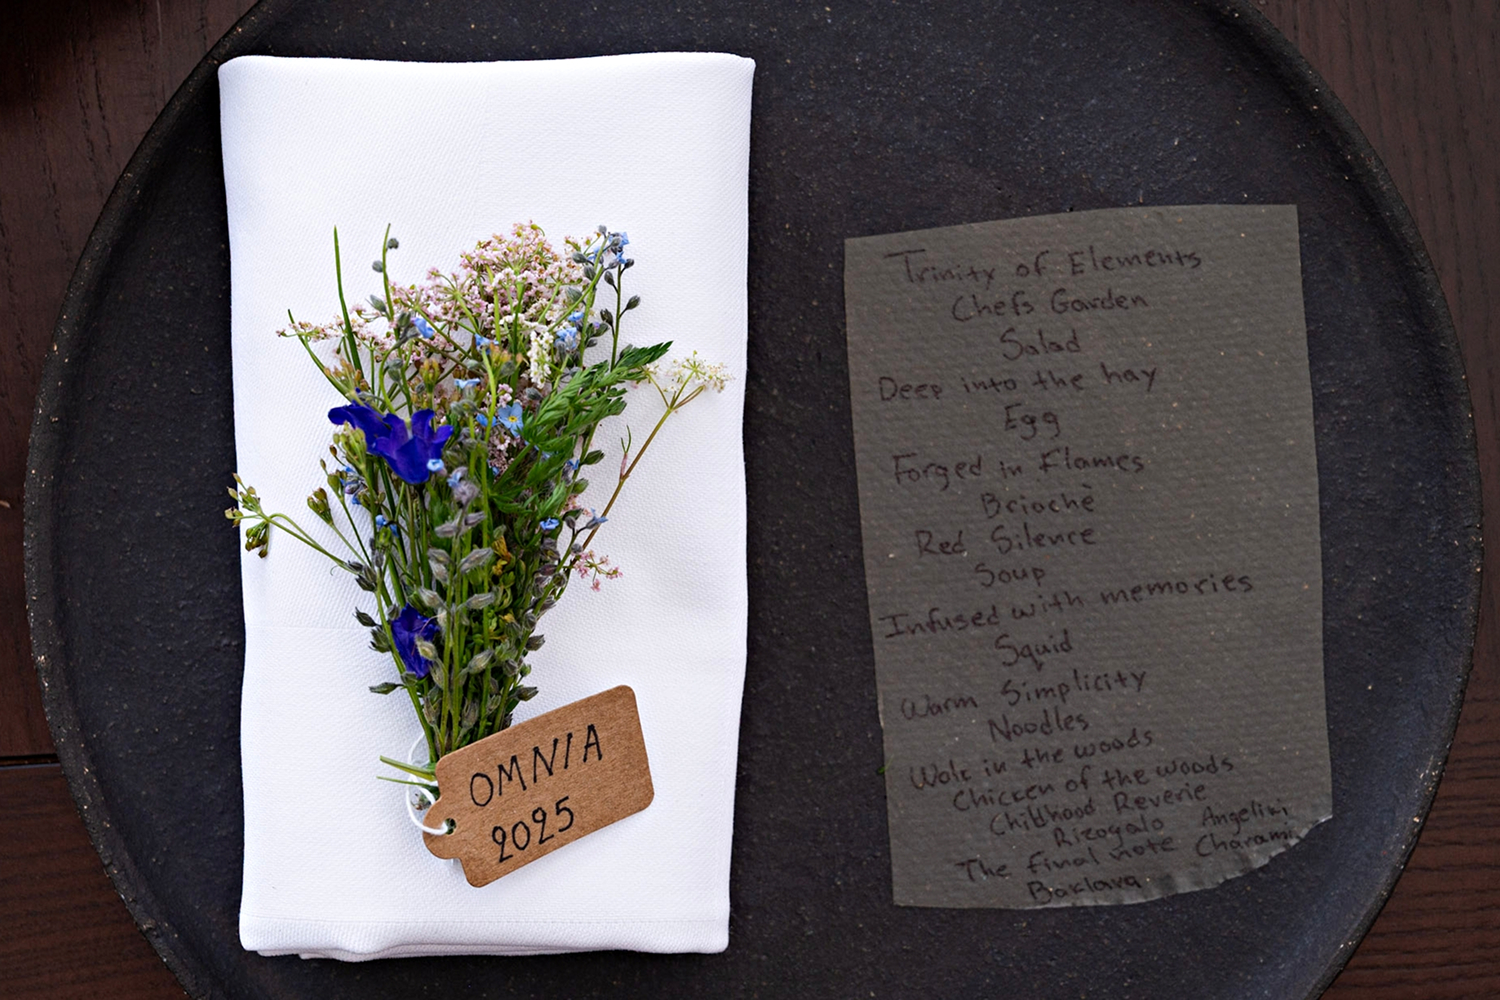 OMNIA
2025
Trinity of Elements
Chefs Garden
Salad
Deep into the hay
Egg
Forged in Flames
Briochè
Red Silence
Soup
Infused with memories
Squid
Warm Simplicity
Noodles
Walk in the woods
Chicken of the woods
Childhood Reverie
Rizogalo
Angelini
The final note
Charami
Baklava